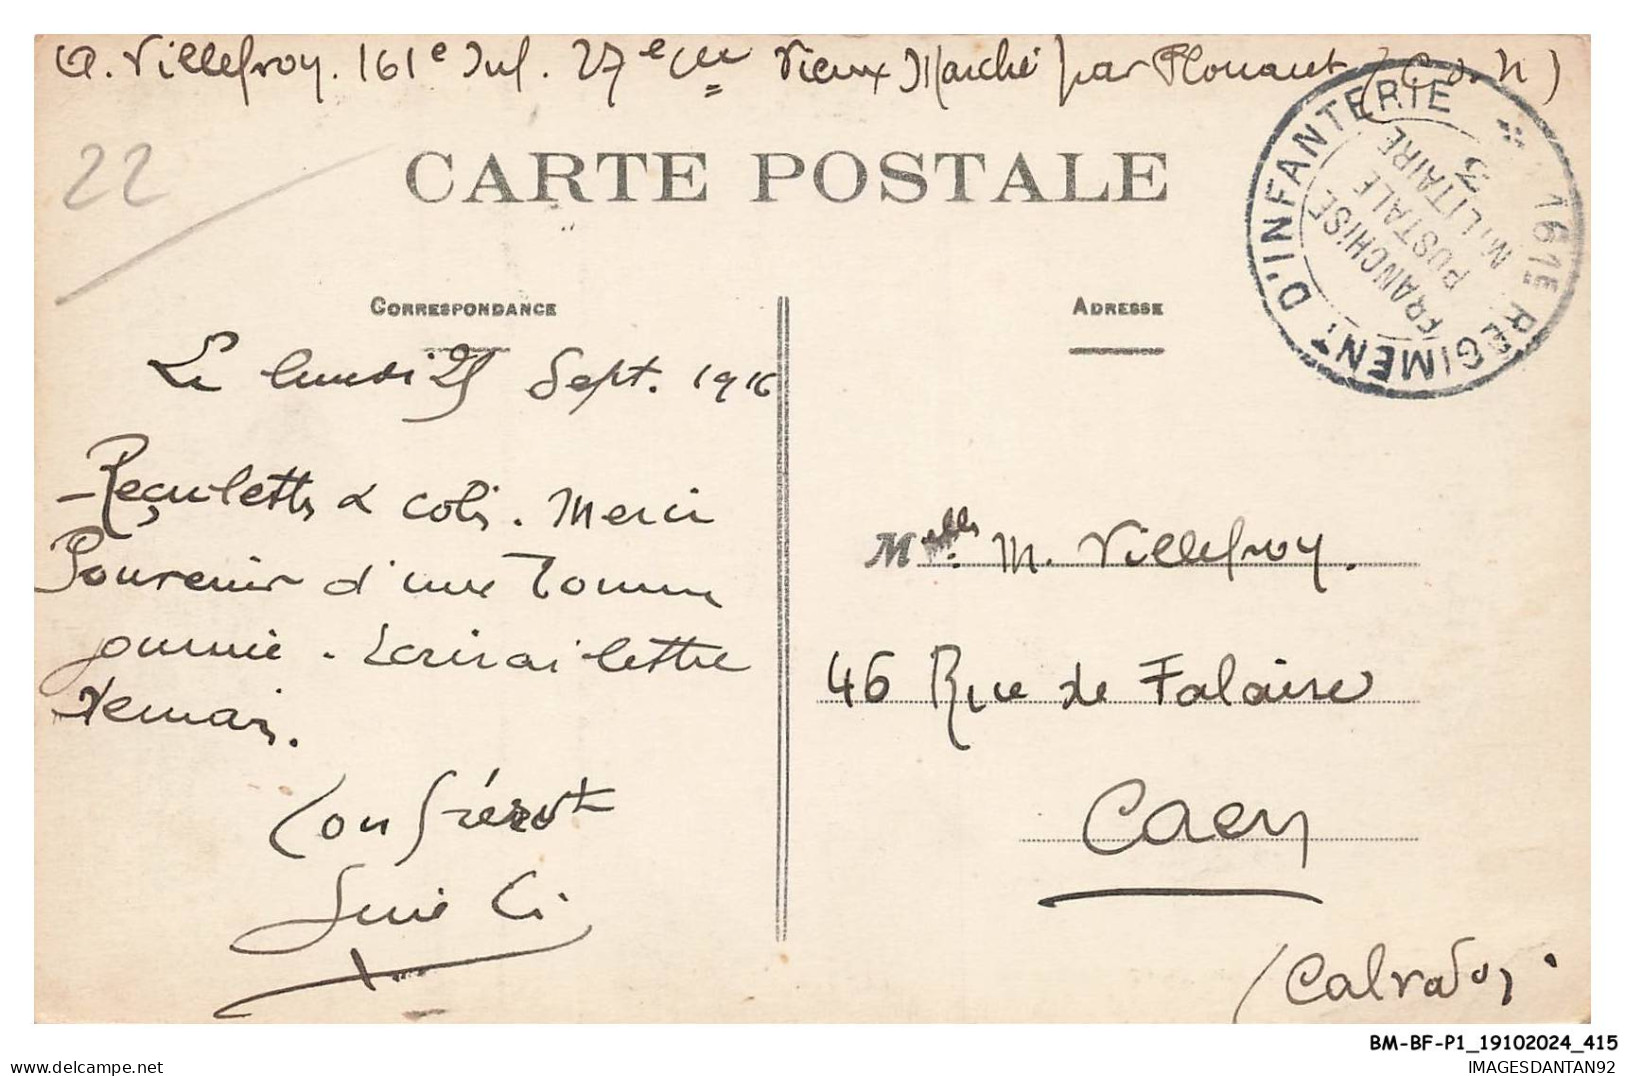 A. Villefroy. 161e Inf. 27e Cie Vieux Marché par Plouaret (C. d. N)
22
CARTE POSTALE
161E REGIMENT D'INFANTERIE *
FRANCHISE
POSTALE
MILITAIRE
3
CORRESPONDANCE
Le lundi 25 Sept. 1916
Reçu lettre & colis. Merci
Souvenir d'une
journée. Ecrirai lettre
demain.
Ton frérot
ADRESSE
Melle. M. Villefroy.
46 Rue de Falaise
Caen
(Calvados
BM-BF-P1_19102024_415
delcampe.net
IMAGESDANTAN92